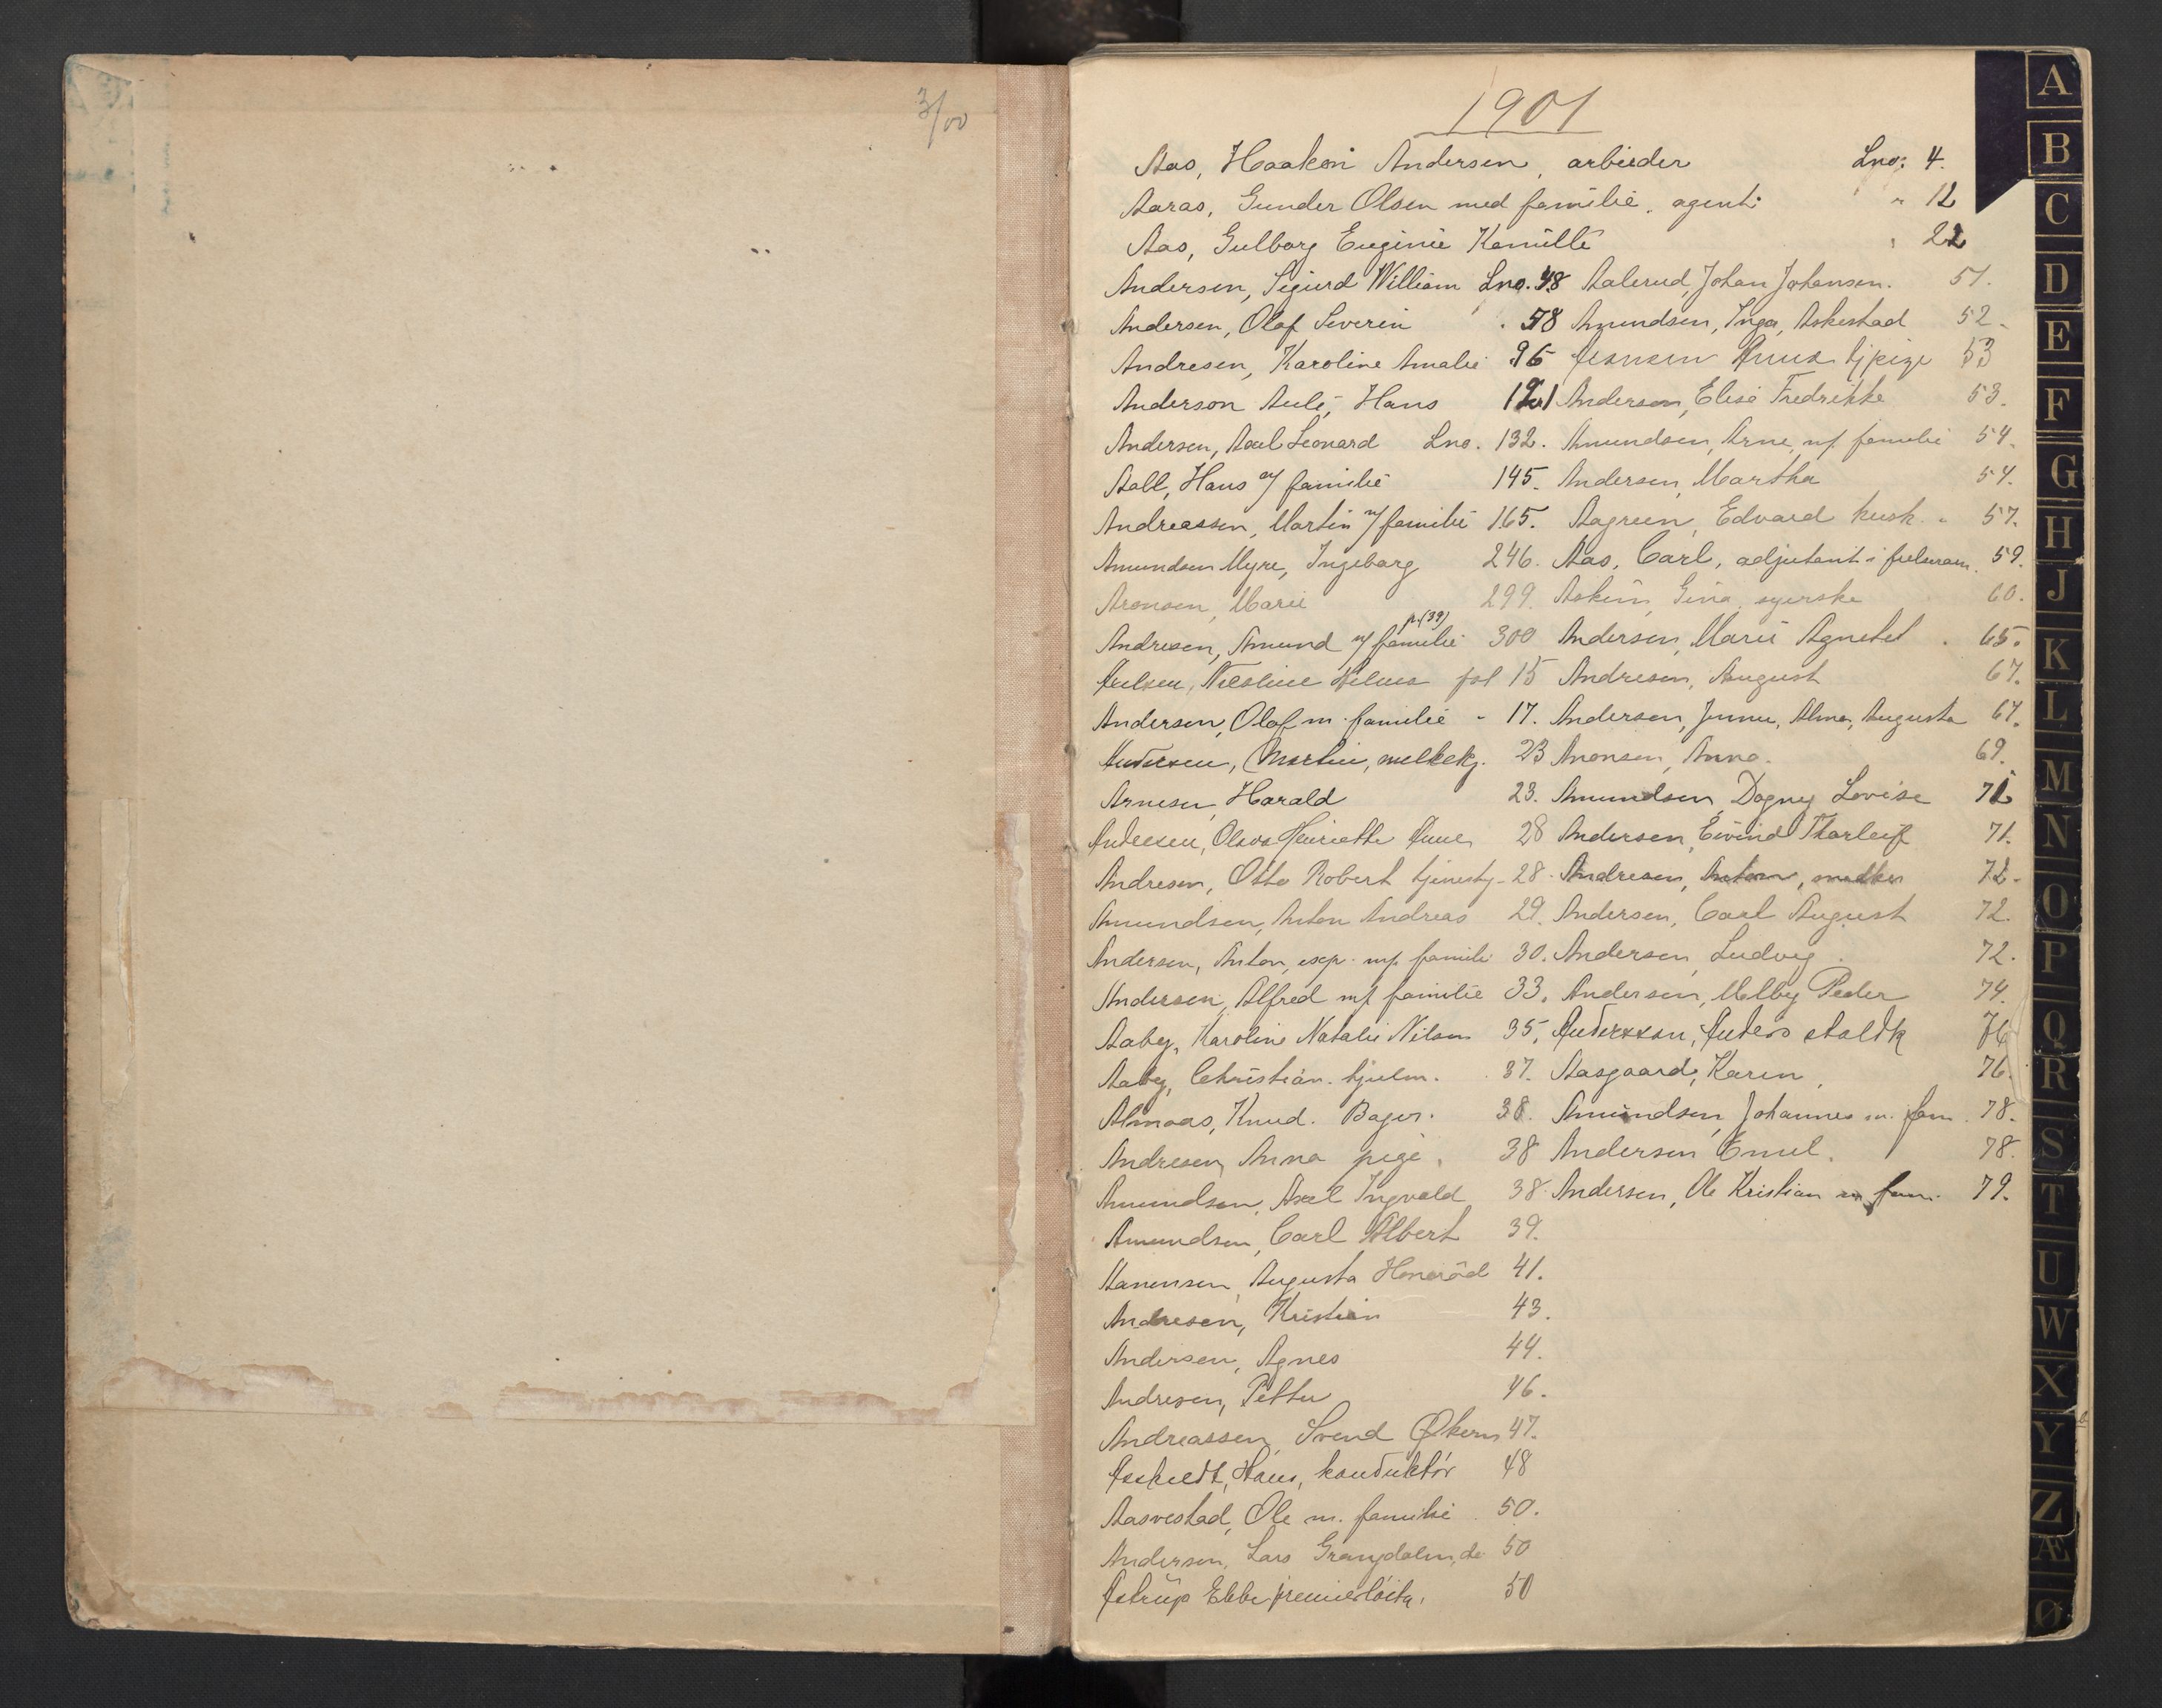 3/00
1901
Aas, Haakon Andersen, arbeider Lno: 4.
Aaras, Gunder Olsen med familie, agent: " 12
Aas, Gulborg Euginie Kamille " 22
Andersen, Sigurd William Lno. 48
Andersen, Olaf Severin 58
Andresen, Karoline Amalie 96
Anderson Hans 121
Andersen, Axel Leonard Lno. 132.
Aall, Hans m/ familie 145.
Andreassen, Martin m/ familie 165.
Amundsen Myre, Ingeborg 246.
Aronsen, Marie 299.
Andresen, Amund m/ familie p.(39) 300
Nicoline fol 15
Andersen, Olaf m. familie " 17.
Andersen, Martin, melkekj. 23
Arnesen, Harald 23.
Andersen, Henriette 28
Andresen, Otto Robert tjenestg. 28.
Amundsen, Anton Andreas 29.
Andersen, Anton, exp. m/ famili 30.
Andersen, Alfred m/ familie 33.
Aaby, Karoline Natalie Nilsen 35.
Aaby, Christian. hjulm. 37.
Almaas, Knud. Bager. 38.
Andresen, Anna pige. 38
Amundsen, Axel Ingvald 38.
Amundsen, Carl Albert 39.
Aanensen, Augusta 41.
Andresen, Kristian 43.
Andersen, Agnes 44.
Andresen, Petter 46.
Andreassen, Svend Økern 47.
Hans, konduktór 48
Aasvestad, Ole m. familie 50.
Anderson, Lars 50
Astrup Ebbe premierlöitn. 50
Aalerud, Johan Johansen. 51.
Amundsen, Inga, Askestad 52.
tjpige 53
Andersen, Elise Fredrikke 53.
Amundsen, Arne, m/ familie 54.
Andersen, Martha 54.
Aagreen, Edvard kusk. " 57.
Aas, Carl, adjutant i frelseram. 59.
Askim, Gina, syerske 60.
Andersen, Marie Agnetel 65.
Andresen, August 67.
Andersen, Jenny, Alma, Augusta 67.
Aronsen, Anna. 69.
Amundsen Dagny Lovise 71
Andersen, Eivind Thorleif 71.
Andresen, Anton, 72.
Andersen, Carl August 72.
Andersen, Ludvig. 72.
Andersen, Melby Peder 74.
Andersson, Anders staldk 76
Aasgaard, Karen, 76.
Amundsen, Johannes m. fam. 78.
Andersen Emil. 78.
Andersen, Ole Kristian m fam. 79.
A
B
C
D
E
F
G
H
J
K
L
M
N
O
P
Q
R
S
T
U
W
X
Y
Z
Æ
Ø